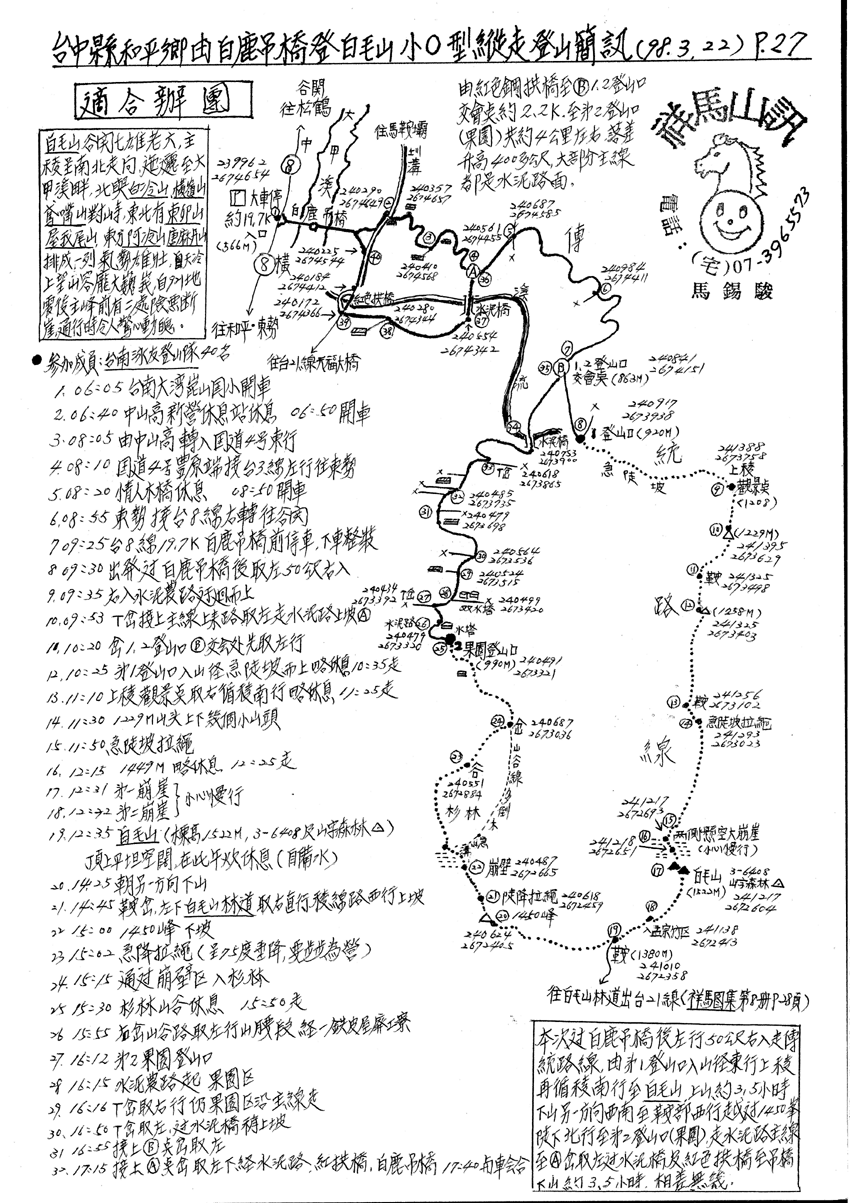 台中縣和平鄉由白鹿吊橋登白毛山小O型縱走登山簡訊(98.3.22) P.27
適合辦團
白毛山谷関七雄老大,主
稜呈南北走向,迤邐至大
甲溪畔,北與白冷山
鳶嘴山對峙,東北有東卯山
屋我尾山 東方阿冷山
排成一列氣勢雄壯,自天冷
上望山容龐大巍峩,自918地
震後主峰前有三處險惡斷
崖,通行時令人驚心動魄。
由紅色鋼拱橋至Ⓑ1.2登山口
交會矣約2.2K.至第2登山口
(果園)共約4公里左右,落差
升高400多公尺,大部分主線
都是水泥路面。
祥馬山訊
電話:(宅)07-3965573
馬錫駿
谷関
往松鶴
大
甲
溪
中
⑧
橫
往馬鞍壩
239962
2674654
大車停
約19.7K
(366M)
白鹿吊橋
240290
2674649
240357
2674657
240687
2674585
240561
2674455
240984
2674411
240225
2674544
240184
2674412
240172
2674366
240410
2674568
240280
2674344
紅色拱橋
水泥橋
240654
2674342
往和平·東勢
往台21線天福大橋
傳
統
路
線
1.2登山口
交會矣(863M)
240841
2674151
240917
2673938
登山口(920M)
急陡坡
水泥橋
240753
2673900
T岔
240618
2673865
240485
2673735
240479
2673698
240564
2673536
240524
2673515
240434
2673392
T岔
240499
2673420
双水塔
水泥路
240479
2673320
水塔
果園登山口
(990M)
240491
2673321
241388
2673758
上稜
觀景點
(1208)
(1229M)
241395
2673629
鞍
241325
2673498
(1258M)
241325
2673403
241256
2673102
鞍
急陡坡拉繩
241293
2673023
岔
240687
2673036
山谷線
谷
240551
2672884
杉林
崩壁
240487
2672665
陡降拉繩
240618
2672459
1450峰
240624
2672405
241217
2672693
241218
2672651
兩側懸空大崩崖
(小心慢行)
白毛山
(1522M)
3-6408
山字森林△
241217
2672604
孟宗竹区
241138
2672413
鞍(1380M)
241010
2672358
往白毛山林道出台21線(祥馬図集第8册P.28頁)
●參加成員:台南冰友登山隊40名
1. 06:05 台南大湾崑山国小開車
2. 06:40 中山高新營休息站休息 06:50開車
3. 08:05 由中山高轉入国道4号東行
4. 08:10 国道4号豐原端接台3線左行往東勢
5. 08:20 情人木橋休息 08:50開車
6. 08:55 東勢接台8線右轉往谷関
7 09:25 台8線19.7K白鹿吊橋前停車,下車整裝
8 09:30 出発过白鹿吊橋後取左50公尺右入
9. 09:35 右入水泥農路迂迴而上
10. 09:53 T岔接上主線上来路取左走水泥路上坡Ⓐ
11. 10:20 岔1,2登山口Ⓑ交會处先取左行
12. 10:25 第1登山口入山径急陡坡而上略休息10:35走
13. 11:10 上稜觀景点取右循稜南行略休息11:25走
14. 11:30 1229M山头上下幾個小山頭
15. 11:50 急陡坡拉繩
16. 12:15 1449M 略休息 12:25走
17. 12:31 第一崩崖
18. 12:32 第二崩崖 } 小心慢行
19. 12:35 白毛山(標高1522M,3-6408尺山字森林△)
頂上平坦空闊,在此午炊休息(自備水)
20. 14:25 朝另一方向下山
21. 14:45 鞍岔,左下白毛山林道取右直行稜線路西行上坡
22 15:00 1450峰下坡
23 15:02 急降拉繩(呈75度垂降,要步步為營)
24. 15:15 通过崩壁区入杉林
25 15:30 杉林山谷休息 15:50走
26 15:55 右岔山谷路取左行山腰段經一鉄皮屋廢工寮
27. 16:12 第2果園登山口
28 16:15 水泥農路起 果園区
29. 16:16 T岔取右行仍果園区沿主線走
30. 16:50 T岔取左,过水泥橋稍上坡
31 16:55 接上Ⓑ矣岔取左
32. 17:15 接上Ⓐ矣岔取左下経水泥路,紅拱橋,白鹿吊橋 17:40与車会合
本次过白鹿吊橋後左行50公尺右入走傳
統路線,由第1登山口入山径東行上稜
再循稜南行至白毛山,上山約3.5小時
下山另一方向西南至鞍部西行越过1450峯
陡下北行至第2登山口(果園)走水泥路主線
至Ⓐ岔取左过水泥橋及紅色拱橋至吊橋
下山約3.5小時,相差無幾。